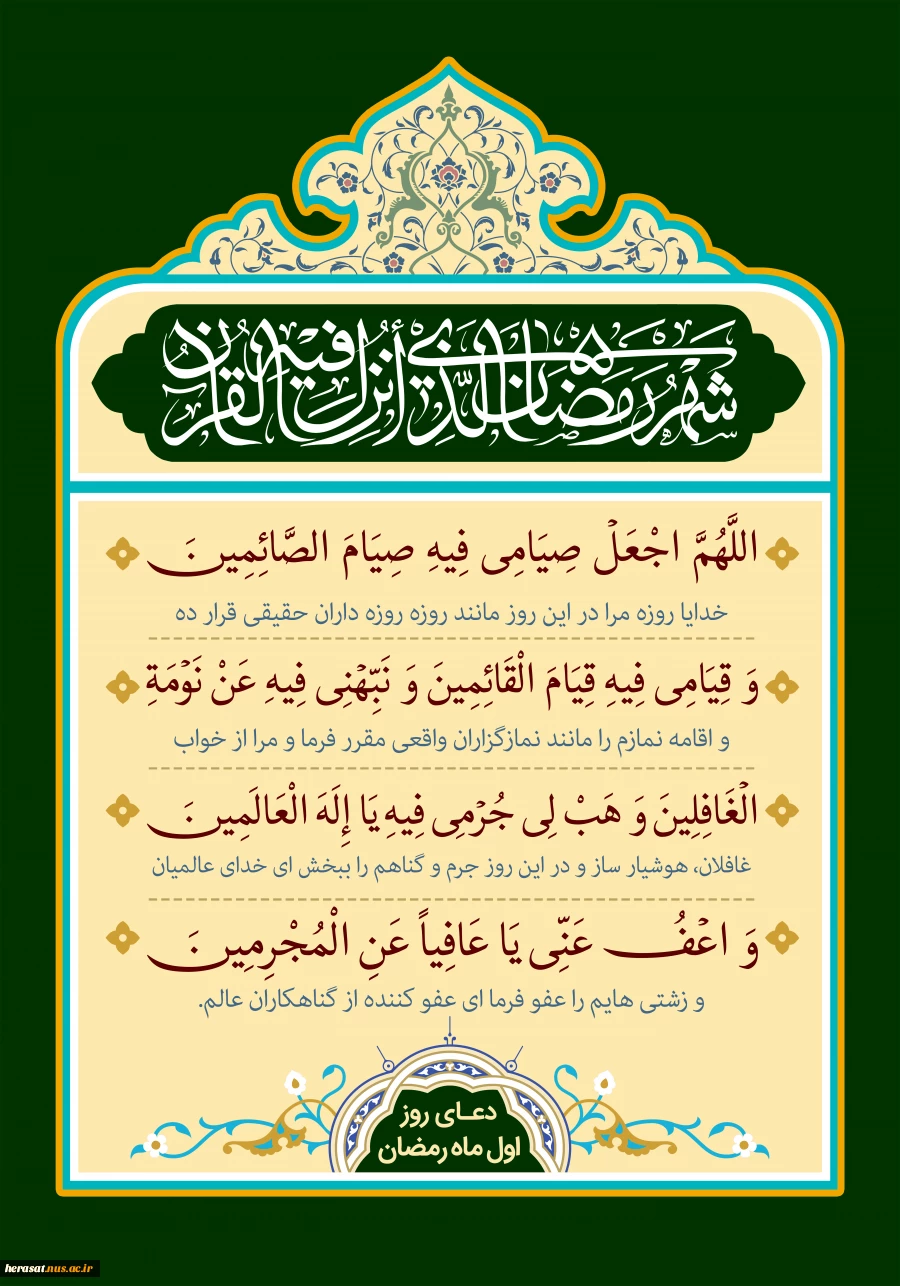 شَهْرُ رَمَضَانَ الَّذِي أُنْزِلَ فِيهِ الْقُرْآنُ
اللَّهُمَّ اجْعَلْ صِيَامِى فِيهِ صِيَامَ الصَّائِمِينَ
خدایا روزه مرا در این روز مانند روزه روزه داران حقیقی قرار ده
وَ قِيَامِى فِيهِ قِيَامَ الْقَائِمِينَ وَ نَبِّهْنِى فِيهِ عَنْ نَوْمَةِ
و اقامه نمازم را مانند نمازگزاران واقعی مقرر فرما و مرا از خواب
الْغَافِلِينَ وَ هَبْ لِى جُرْمِى فِيهِ يَا إِلَهَ الْعَالَمِينَ
غافلان، هوشیار ساز و در این روز جرم و گناهم را ببخش ای خدای عالمیان
وَ اعْفُ عَنِّى يَا عَافِياً عَنِ الْمُجْرِمِينَ
و زشتی هایم را عفو فرما ای عفو کننده از گناهکاران عالم.
دعای روز
اول ماه رمضان
herasat.nus.ac.ir